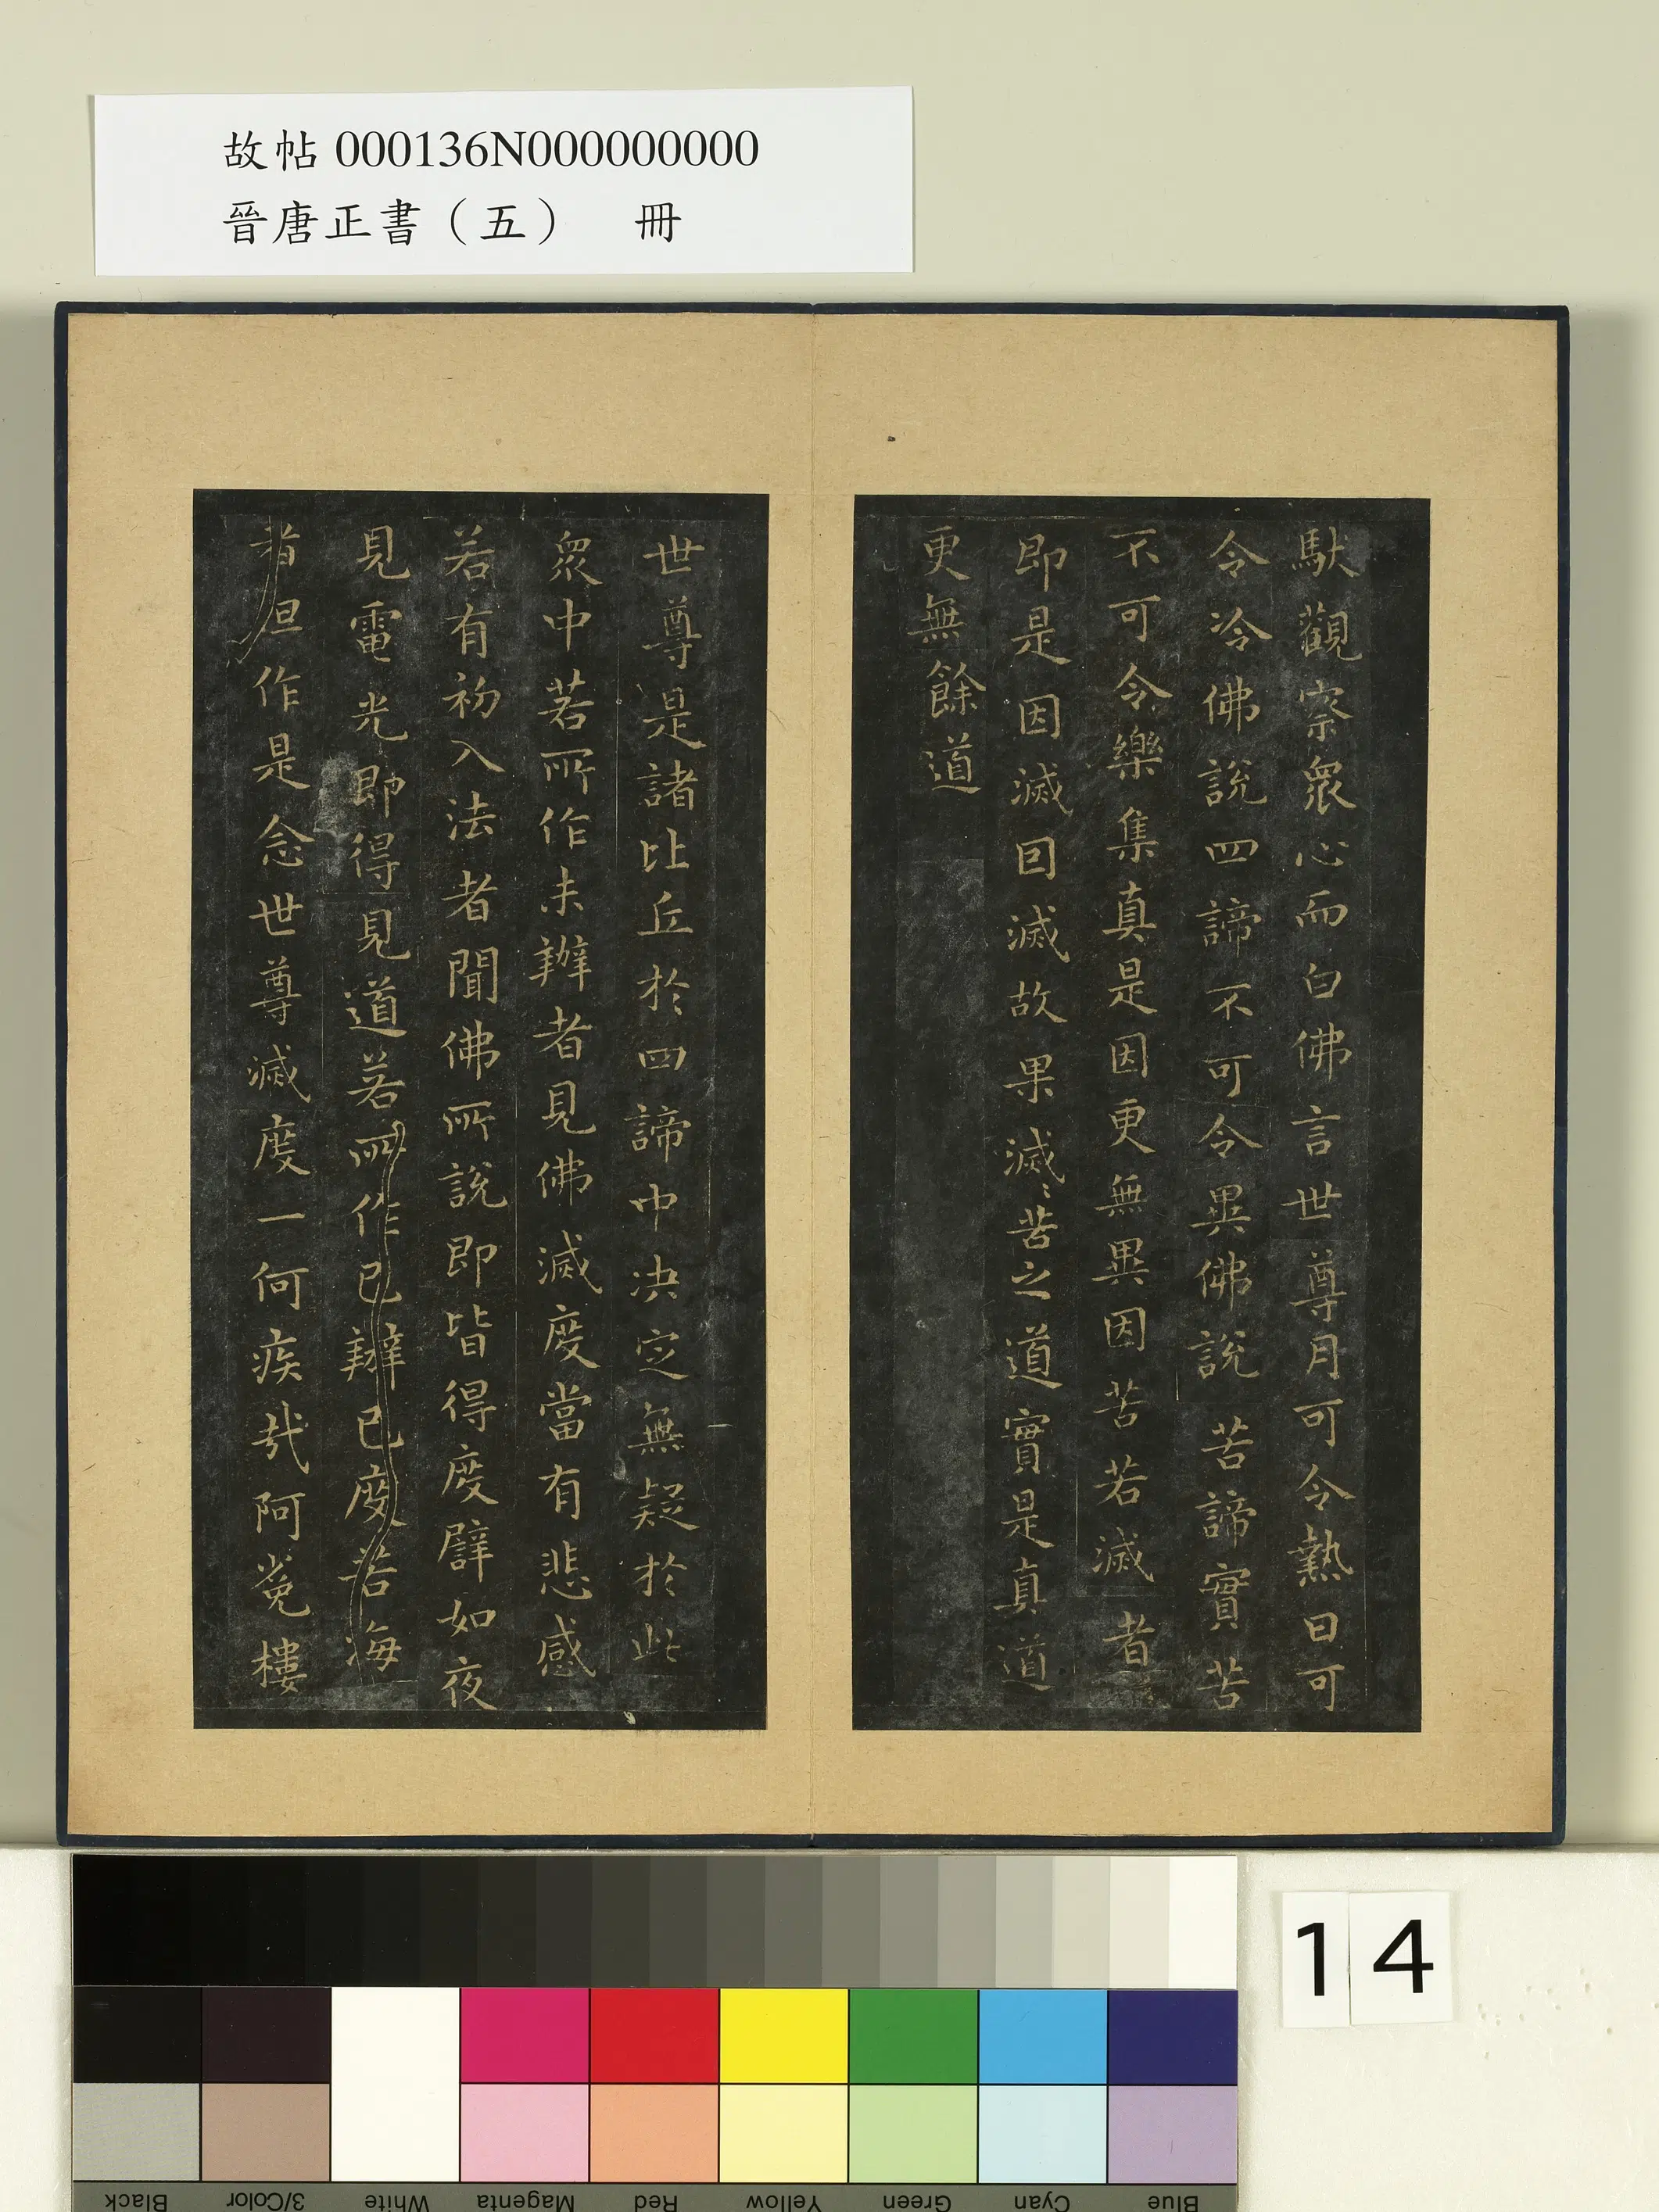 故帖 000136N000000000
晉唐正書（五） 冊
馱觀察衆心而白佛言世尊月可令熱日可
令冷佛說四諦不可令異佛說苦諦實苦
不可令樂集真是因更無異因苦若滅者
即是因滅因滅故果滅滅苦之道實是真道
更無餘道
世尊是諸比丘於四諦中决定無疑於此
衆中若所作未辦者見佛滅度當有悲感
若有初入法者聞佛所說即皆得度譬如夜
見電光即得見道若所作已辦已度苦海
者但作是念世尊滅度一何疾哉阿㝹樓
14
Black
3/Color
White
Magenta
Red
Yellow
Green
Cyan
Blue